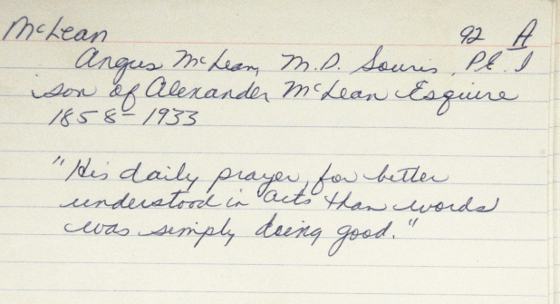 McLean 92 A
Angus McLean, M.D. Souris, P.E.I
son of Alexander McLean Esquire
1858-1933
"His daily prayer, for better
understood in acts than words
was simply doing good."